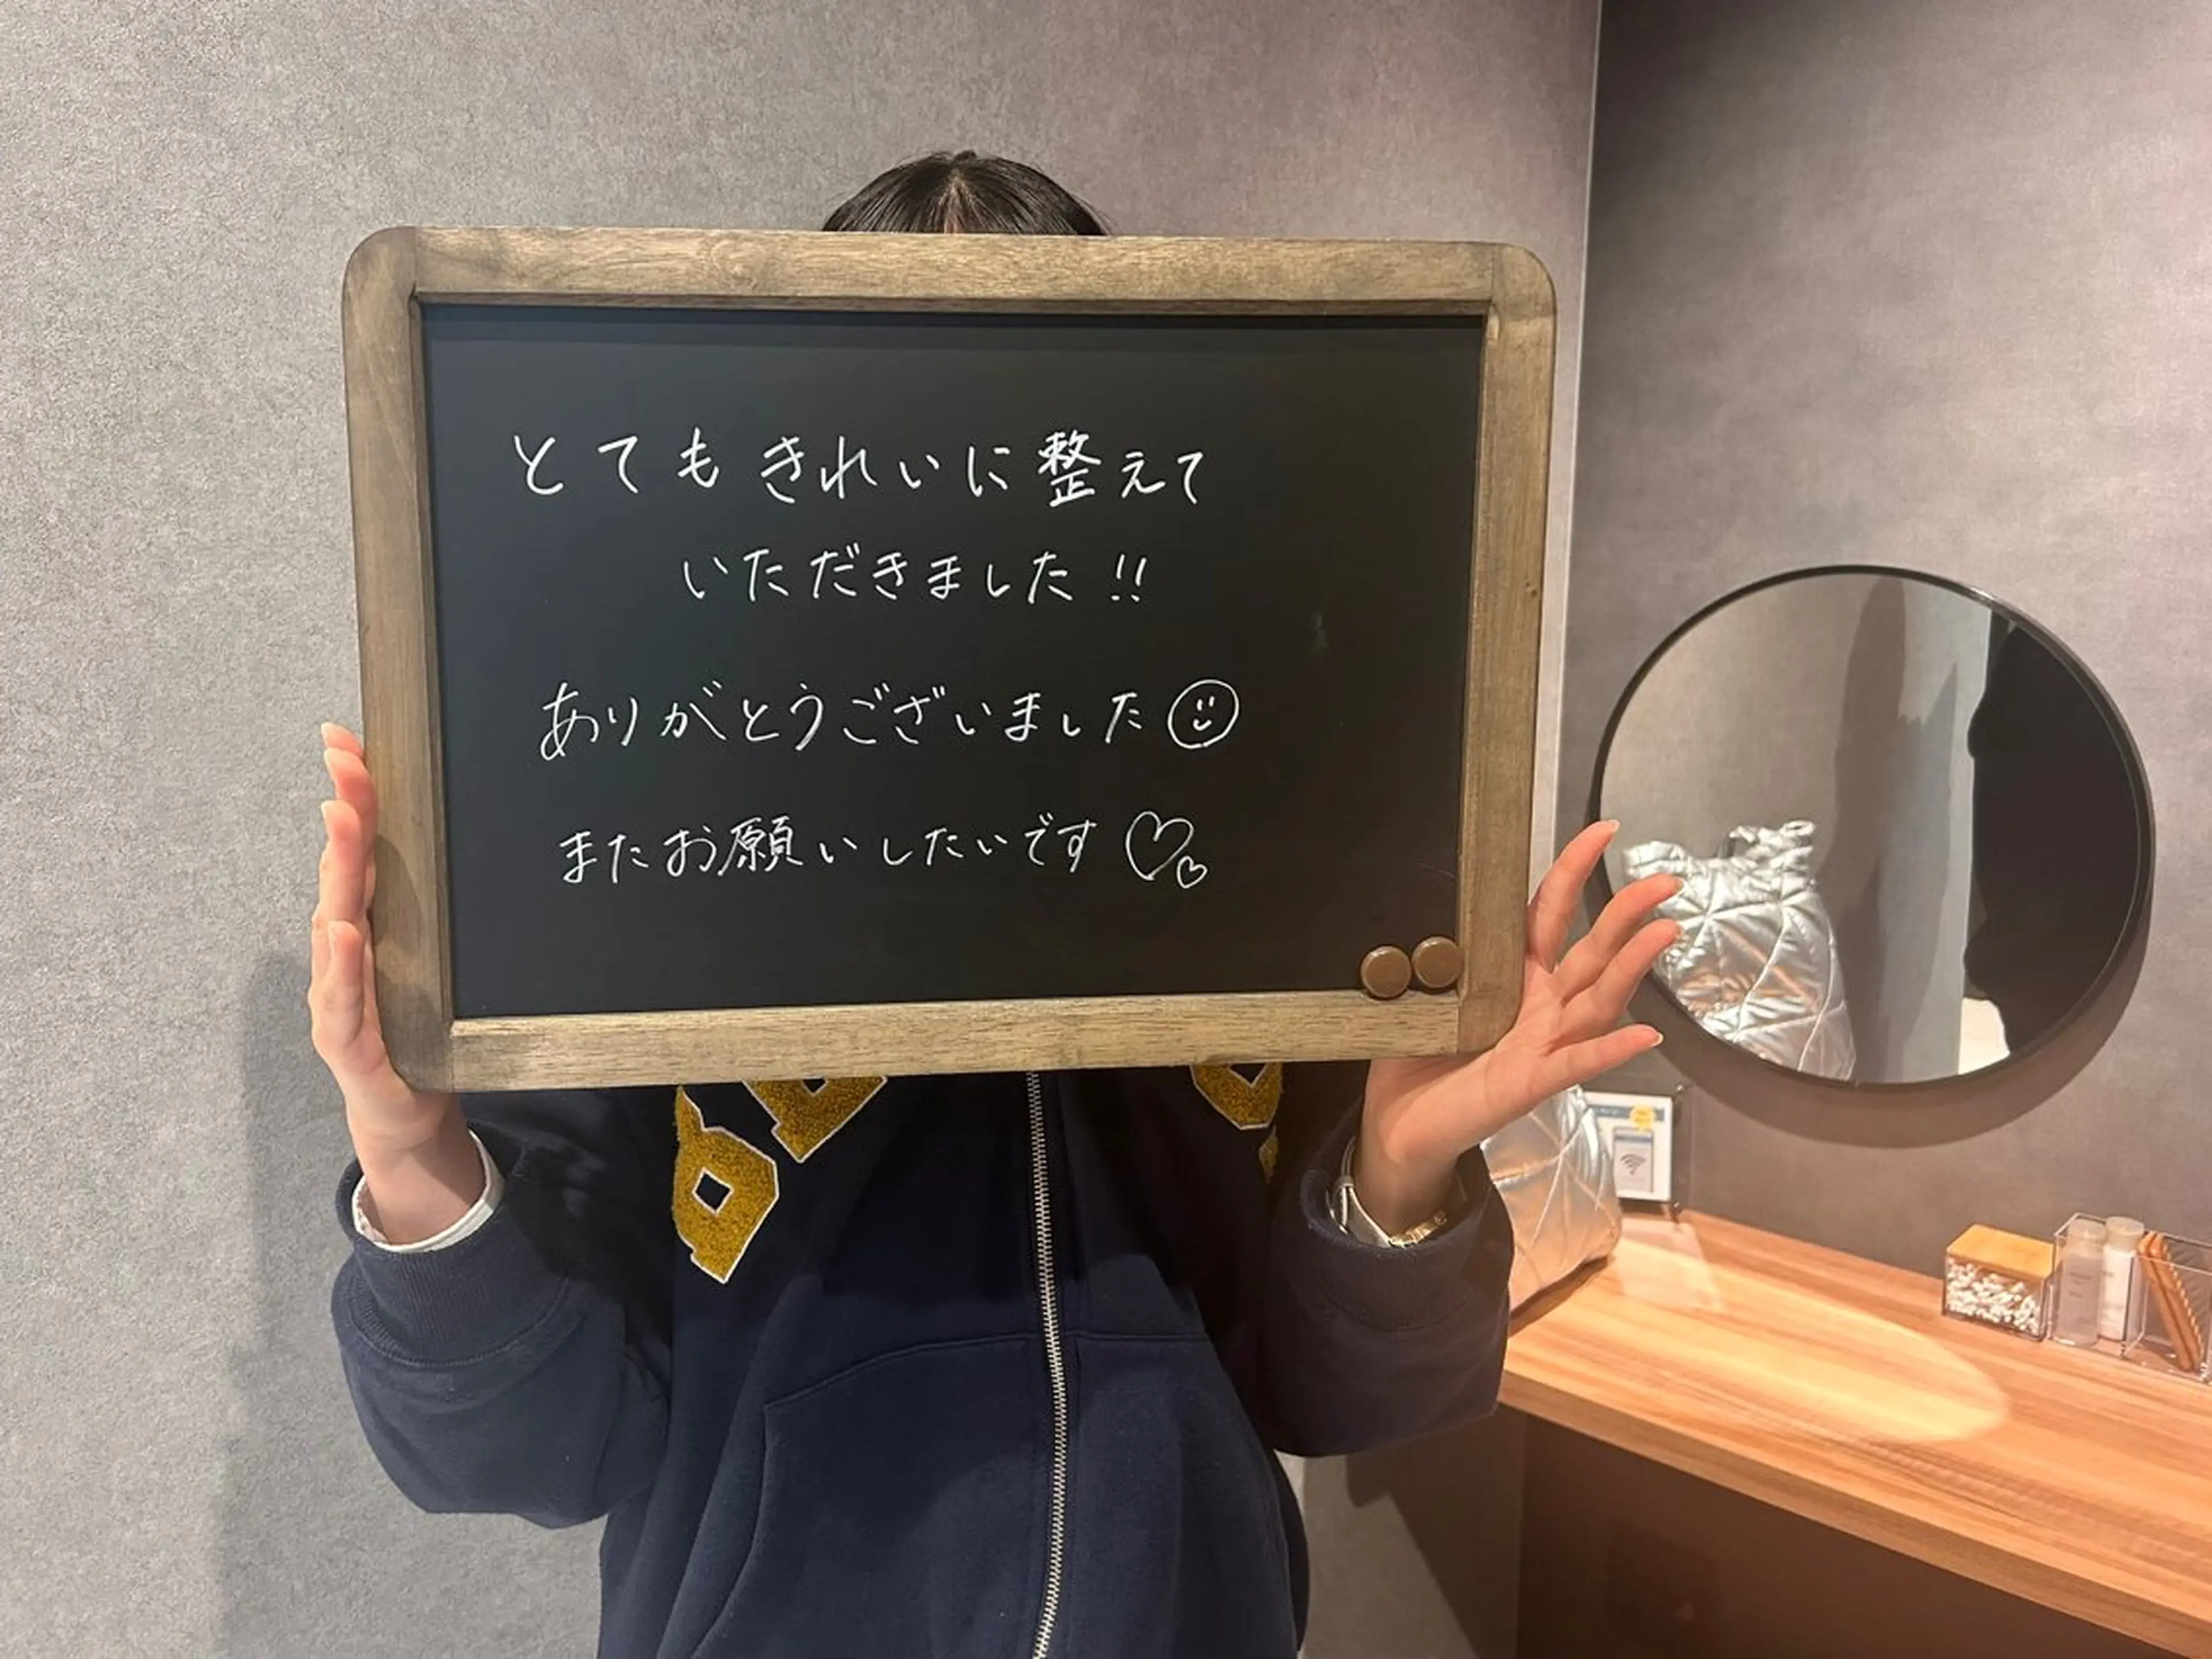 とてもきれいに整えて
いただきました!!
ありがとうございました
またお願いしたいです